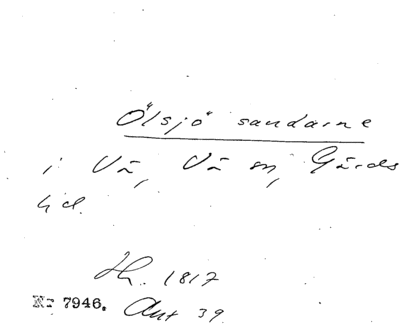 Ölsjö sandarne
i Vä, Vä sn, Gärds
hd.
Hr. 1817
Nr 7946. Ant 39